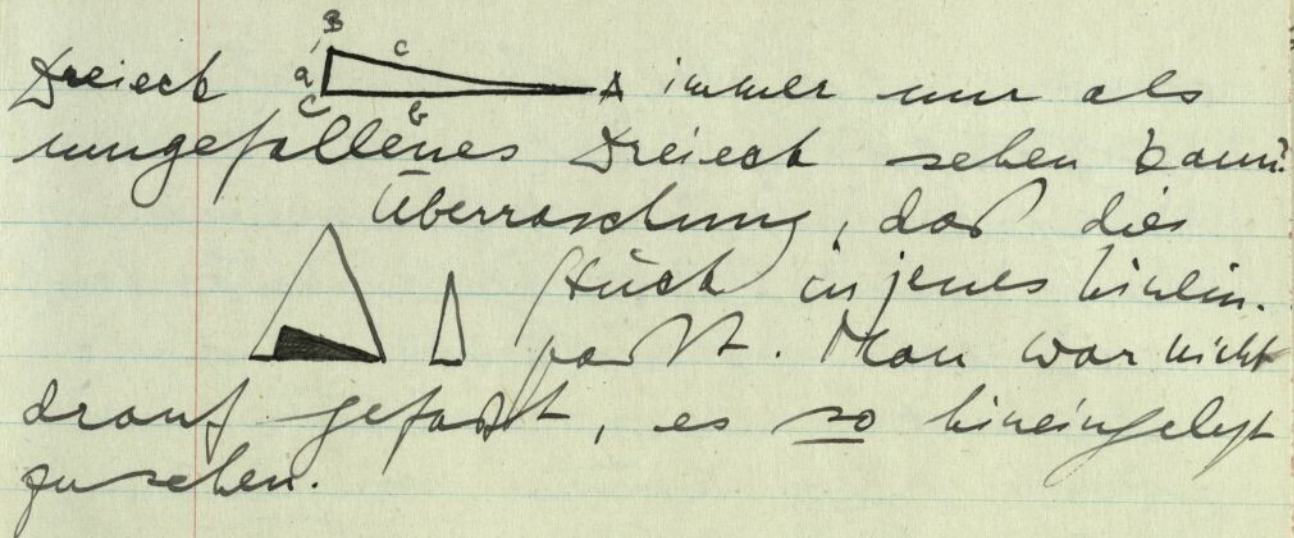 B
c
Dreieck a A immer nur als
C b
umgefallenes Dreieck sehen kann?
Überraschung, daß dies
Stück in jenes hinein-
paßt. Man war nicht
drauf gefaßt, es so hineingelegt
zu sehen.